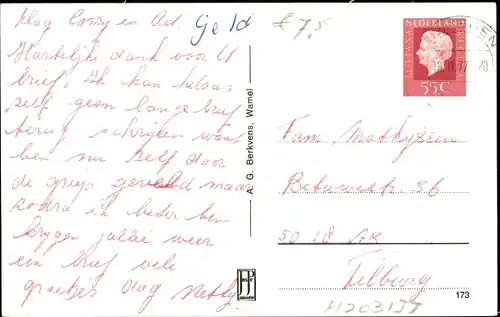 Dag Corry en Ad.
Geld
Hartelijk dank voor U
brief, Ik kan helaas
zelf geen lange brief
terug schrijven want
ben nu zelf door
de griep geveld maar
zodra ik beter ben
krygen jullie weer
een brief vele
groetjes dag Netty.
€ 7,5
A. G. Berkvens, Wamel
NEDERLAND
JULIANA REGINA
55C
77
Fam Mathyssen
36
5018 AK
Tilburg
173